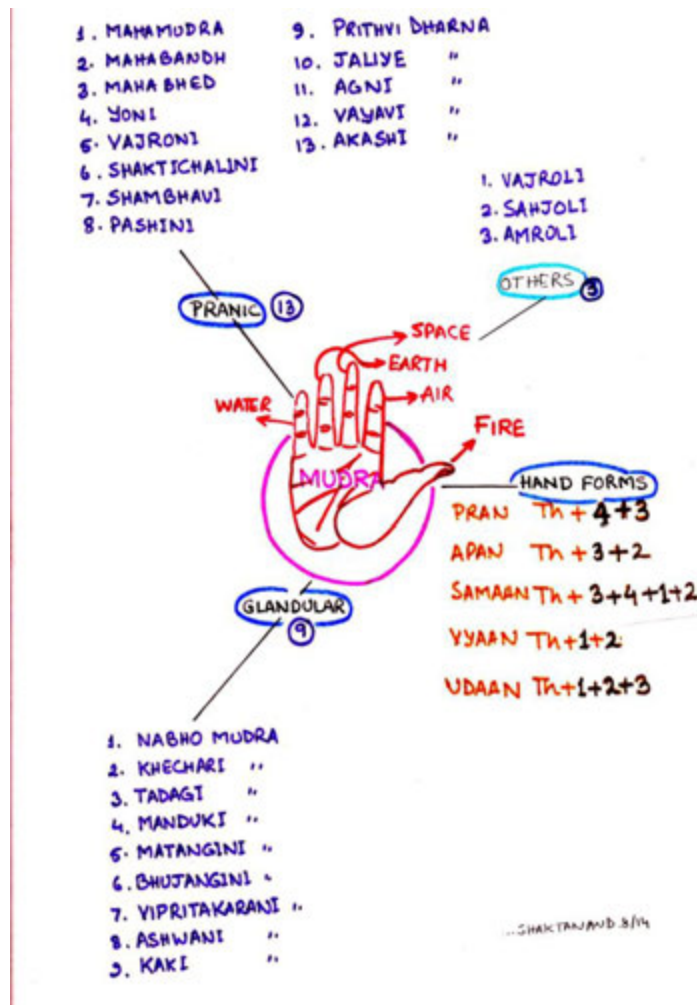 1. MAHAMUDRA
2. MAHABANDH
3. MAHABHED
4. YONI
5. VAJRONI
6. SHAKTICHALINI
7. SHAMBHAVI
8. PASHINI
9. PRITHVI DHARNA
10. JALIYE "
11. AGNI "
12. VAYAVI "
13. AKASHI "
1. VAJROLI
2. SAHJOLI
3. AMROLI
OTHERS 3
PRANIC 13
SPACE
EARTH
AIR
WATER
FIRE
MUDRA
HAND FORMS
PRAN Th + 4+3
APAN Th + 3+2
SAMAAN Th + 3+4+1+2
VYAAN Th+1+2
UDAAN Th+1+2+3
GLANDULAR
9
1. NABHO MUDRA
2. KHECHARI "
3. TADAGI "
4. MANDUKI "
5. MATANGINI "
6. BHUJANGINI "
7. VIPRITAKARANI "
8. ASHWANI "
9. KAKI "
...SHAKTANAND.8/14